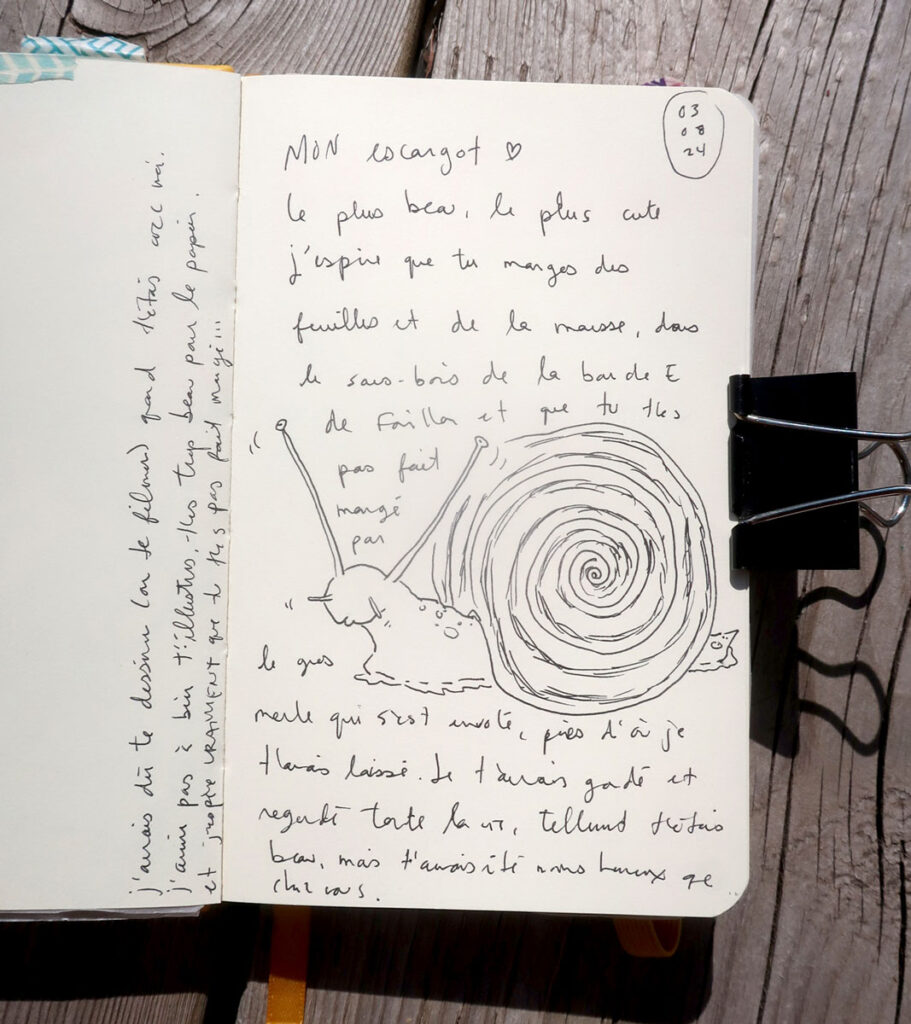 03
08
24
MON escargot ♡
le plus beau, le plus cute
j'espère que tu manges des
feuilles et de la mousse, dans
le sous-bois de la bande E
de Faillon et que tu t'es
pas fait
mangé
par
le gros
merle qui s'est envolé, près d'où je
t'avais laissé. Je t'aurais gardé et
regardé toute la vie, tellement t'étais
beau, mais t'aurais été moins heureux que
chez vous.
j'aurais dû te dessiner (on te filmant) quand t'étais avec moi.
j'arrive pas à bien t'illustrer, t'es trop beau pour le papier.
et j'espère VRAIMENT que tu t'es pas fait mangé...